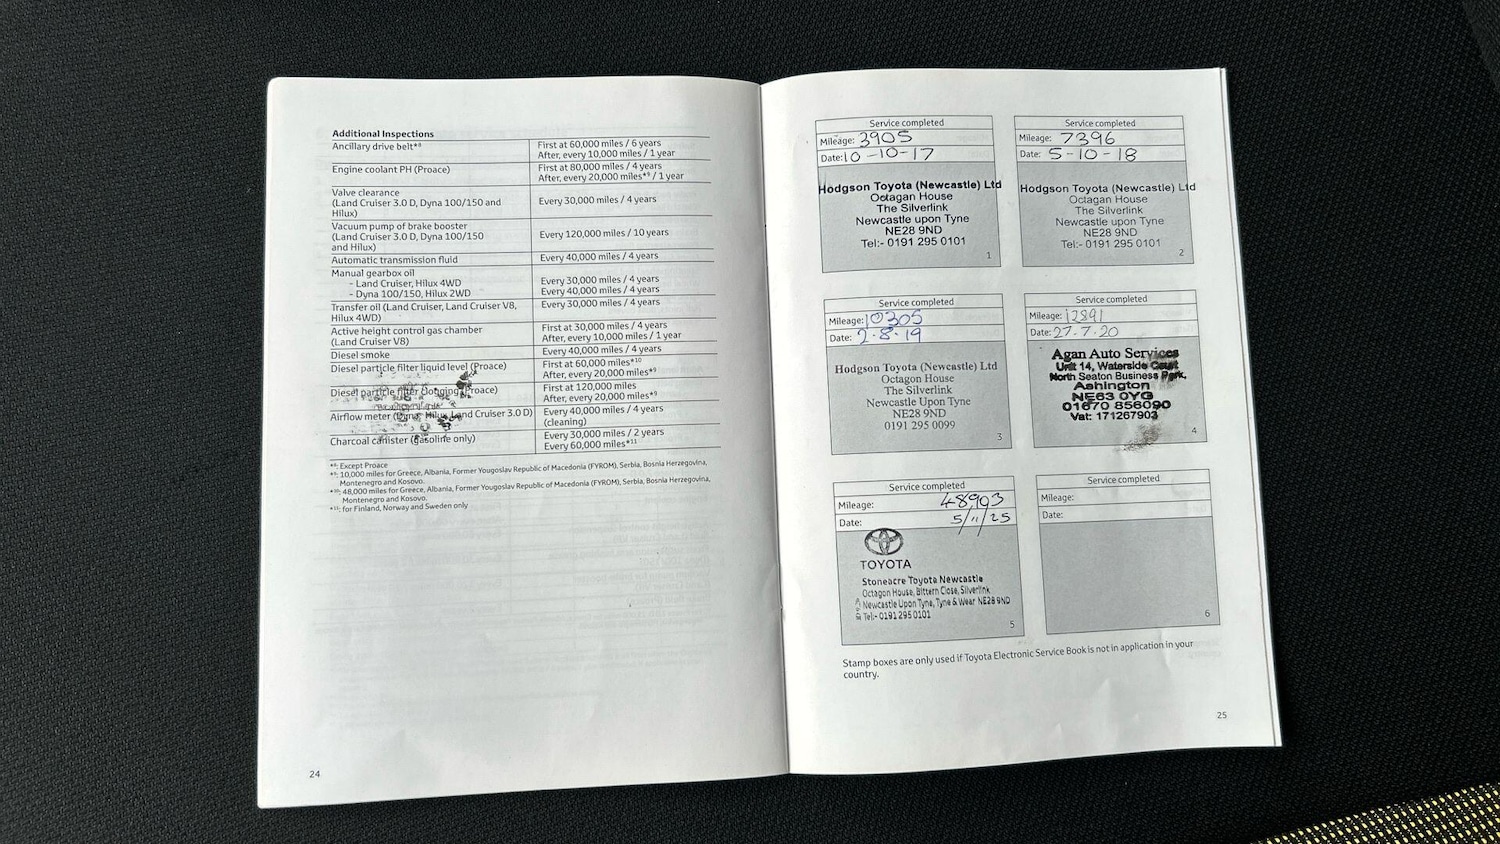 Additional Inspections
Ancillary drive belt*⁸ First at 60,000 miles / 6 years
After, every 10,000 miles / 1 year
Engine coolant PH (Proace) First at 80,000 miles / 4 years
After, every 20,000 miles*⁹ / 1 year
Valve clearance
(Land Cruiser 3.0 D, Dyna 100/150 and Every 30,000 miles / 4 years
Hilux)
Vacuum pump of brake booster
(Land Cruiser 3.0 D, Dyna 100/150 Every 120,000 miles / 10 years
and Hilux)
Automatic transmission fluid Every 40,000 miles / 4 years
Manual gearbox oil
- Land Cruiser, Hilux 4WD Every 30,000 miles / 4 years
- Dyna 100/150, Hilux 2WD Every 40,000 miles / 4 years
Transfer oil (Land Cruiser, Land Cruiser V8, Every 30,000 miles / 4 years
Hilux 4WD)
Active height control gas chamber First at 30,000 miles / 4 years
(Land Cruiser V8) After, every 10,000 miles / 1 year
Diesel smoke Every 40,000 miles / 4 years
Diesel particle filter liquid level (Proace) First at 60,000 miles*¹⁰
After, every 20,000 miles*⁹
Diesel particle filter clogging (Proace) First at 120,000 miles
After, every 20,000 miles*⁹
Airflow meter (Dyna, Hilux, Land Cruiser 3.0 D) Every 40,000 miles / 4 years
(cleaning)
Charcoal canister (gasoline only) Every 30,000 miles / 2 years
Every 60,000 miles*¹¹
*⁸: Except Proace
*⁹: 10,000 miles for Greece, Albania, Former Yougoslav Republic of Macedonia (FYROM), Serbia, Bosnia Herzegovina,
Montenegro and Kosovo.
*¹⁰: 48,000 miles for Greece, Albania, Former Yougoslav Republic of Macedonia (FYROM), Serbia, Bosnia Herzegovina,
Montenegro and Kosovo.
*¹¹: for Finland, Norway and Sweden only
24
Service completed
Mileage: 3905
Date: 10-10-17
Hodgson Toyota (Newcastle) Ltd
Octagan House
The Silverlink
Newcastle upon Tyne
NE28 9ND
Tel:- 0191 295 0101
1
Service completed
Mileage: 7396
Date: 5-10-18
Hodgson Toyota (Newcastle) Ltd
Octagan House
The Silverlink
Newcastle upon Tyne
NE28 9ND
Tel:- 0191 295 0101
2
Service completed
Mileage: 10305
Date: 2.8.19
Hodgson Toyota (Newcastle) Ltd
Octagon House
The Silverlink
Newcastle Upon Tyne
NE28 9ND
0191 295 0099
3
Service completed
Mileage: 12891
Date: 27.7.20
Agan Auto Services
Unit 14, Waterside Court
North Seaton Business Park,
Ashington
NE63 0YG
01670 856090
Vat: 171267903
4
Service completed
Mileage: 48903
Date: 5/11/25
TOYOTA
Stoneacre Toyota Newcastle
Octagon House, Bittern Close, Silverlink
Newcastle Upon Tyne, Tyne & Wear NE28 9ND
Tel:- 0191 295 0101
5
Service completed
Mileage:
Date:
6
Stamp boxes are only used if Toyota Electronic Service Book is not in application in your
country.
25